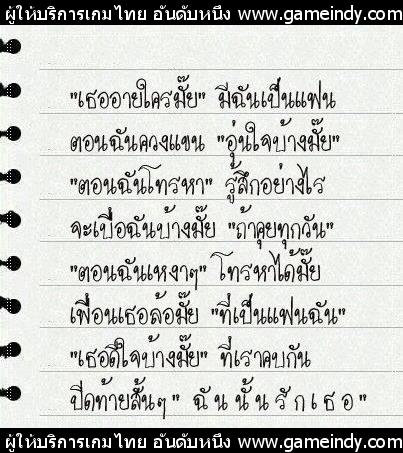 ผู้ให้บริการเกมไทย อันดับหนึ่ง www.gameindy.com
"เธออายใครมั๊ย" มีฉันเป็นแฟน
ตอนฉันควงแขน "อุ่นใจบ้างมั๊ย"
"ตอนฉันโทรหา" รู้สึกอย่างไร
จะเบื่อฉันบ้างมั๊ย "ถ้าคุยทุกวัน"
"ตอนฉันเหงาๆ" โทรหาได้มั๊ย
เพื่อนเธอล้อมั๊ย "ที่เป็นแฟนฉัน"
"เธอดีใจบ้างมั๊ย" ที่เราคบกัน
ปิดท้ายสั้นๆ" ฉ ั น นั้ น รั ก เ ธ อ "
ผู้ให้บริการเกมไทย อันดับหนึ่ง www.gameindy.com